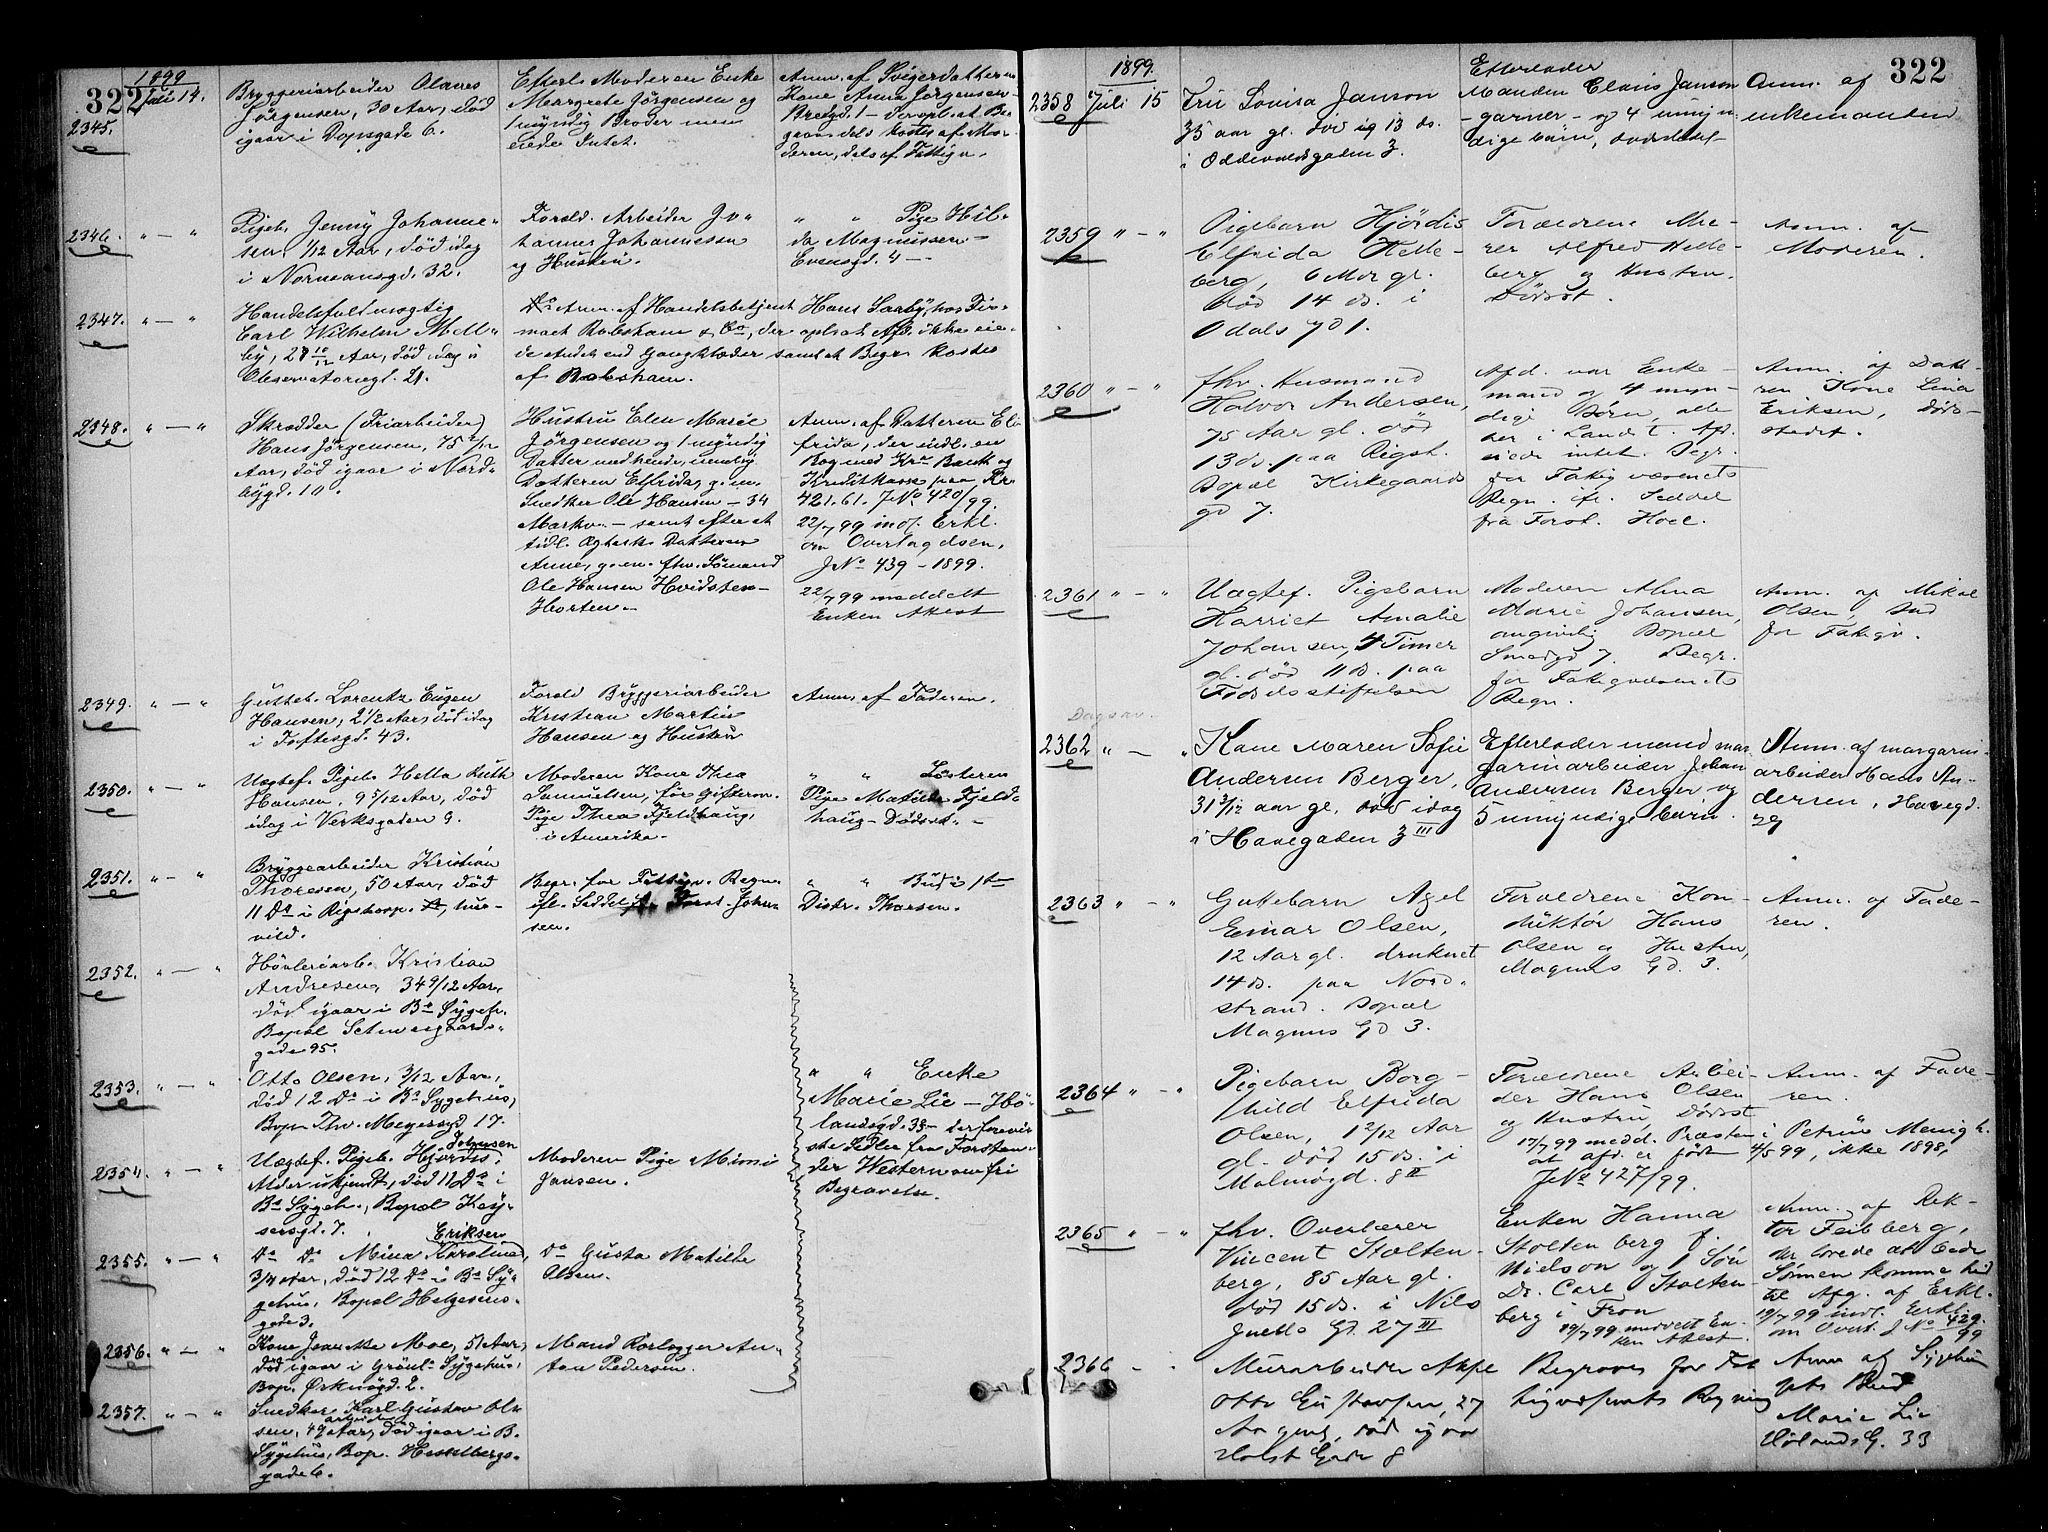 322
1899
Juli 14.
2345.
Bryggeriarbeider Olaves
Jörgensen, 30 Aar, död
igaar i Dopsgade 6.
Efterl. Moderen Enke
Margrete Jörgensen og
1 myndig Broder men
eiede Intet.
Anm. af Svigerdatteren
Kone Anna Jörgensen
Bredgd. 1 - der opl. at Be-
gravelsen dels kostes af Mo-
deren, dels af Fattigv.
2346. " — "
Pigeb. Jenny Johanne-
sen, 1/12 Aar, död idag
i Normansgd. 32.
Foreld. Arbeider Jo-
hannes Johannessen
og Hustru.
" " Pige Hil-
da Magnussen
Evensgd. 4 —
2347. " — "
Handelsfuldmægtig
Carl Wilhelm Mell-
by, 27 10/12 Aar, död idag i
Observatoriegd. 21.
Anm. af Handelsbetjent Hans Saxby, hos Fir-
maet Robsham & Co, der opl. at Afd. ikke eie-
de andet end Gangklæder samt at Begr. kostes
af Robsham.
2348. " — "
Skrædder (Friarbeider)
Hans Jörgensen, 75 2/12
Aar, död igaar i Nord-
bygd. 10.
Hustru Elen Marie
Jörgensen og 1 myndig
Datter med hende, nemlig
Datteren Elfrida, g. m.
Snedker Ole Hansen — 34
Markv. — samt efter et
tidl. Ægtesk. Datteren
Anne, g. m. fhv. Sömand
Ole Hansen Hvidsten —
Horten.
Anm. af Datteren El-
frida, der indl. en
Bog med Kra Bank og
Kreditkasse paa Kr
421.61. JNo 420/99.
22/7 99 indl. Erkl.
om Overtagelsen,
JNo 439 - 1899.
22/7 99 meddelt
Enken Attest
2349. " — "
Gutteb. Lorentz Eugen
Hansen, 2 1/2 Aar, död idag
i Toftesgd. 43.
Foreld Bryggeriarbeider
Kristian Martin
Hansen og Hustru
Anm. af Faderen.
2350. " — "
Uægtef. Pigeb. Hella Ruth
Hansen, 9 5/12 Aar, död
idag i Verksgaden 9.
Moderen Kone Thea
Samuelsen, för Gifterm.
Pige Thea Fjeldhaug,
i Amerika.
" " Söster
Pige Matilde Fjeld-
haug - Dödsst. -
2351. " — "
Bryggearbeider Kristian
Thoresen, 50 Aar, död
11 Ds i Rigshosp.
Begr. for Fattigv. Regn.
efl. Seddel fra Forst. John-
sen.
" " Bud i 1ste
Distr. Thorsen.
2352. " — "
Hövleriarb. Kristian
Andresen, 34 9/12 Aar,
död igaar i Bs Sygeh.
Bopæl Schweigaards-
gade 95.
2353. " — "
Otto Olsen, 3/12 Aar,
död 12 Ds i Bs Sygehus,
Bop. Thv. Meyersgd 17.
" " Enke
Marie Lie — Hö-
landsgd. 33 - der foreviste
Sedler fra Forstan-
der Western om fri
Begravelse.
2354. " — "
Johnsen
Uægtef. Pigeb. Hjördis,
Alder ukjendt, död 11 Ds i
Bs Sygeh., Bopæl Key-
sersgd. 7.
Moderen Pige Mimi
Jansen.
2355. " — "
Eriksen
Do Do Mina Karoline,
3/4 Aar, död 12 Ds i Bs Sy-
gehus, Bopæl Helgesens-
gade 3.
Do Gusta Matilde
Olsen.
2356. " — "
Kone Jeanette Moe, 51 Aar,
död igaar i Grönl. Sygehus,
Bop. Örknögd. 2.
Mand Rörlogger An-
ton Pedersen.
2357. " — "
Snedker Karl Gustav Ol-
sen, 49 Aar, död igaar i B.
Sygehus, Bop. Hesselbergs-
gade 6.
322
1899.
2358 Juli 15
Fru Lovisa Janson
35 aar gl. död 13 ds.
i Oddevaldsgaden 3.
Efterlader
Manden Claus Janson
garner - og 4 umyn-
dige börn, dödsstedet
Anm. af
enkemanden
2359 " — "
Pigebarn Hjördis
Elfrida Helle-
berg, 6 Mdr gl.
död 14 ds. i
Odals gd 1.
Forældrene Mu-
rer Alfred Helle-
berg og Hustru
Dödsst.
Anm. af
Moderen.
2360 " — "
fhv. Husmand
Halvor Andersen,
75 Aar gl. död
13 ds. paa Rigsh.
Bopæl Kirkegaards
gd 7.
Afd. var Enke-
mand og 4 myn-
dige Börn, alle
her i Landet. Afd.
eiede intet. Begr.
for Fattigvæsenets
Regn. ifl. Seddel
fra Forst. Hoel.
Anm. af Datt-
ren Kone Lina
Eriksen, döds-
stedet.
2361 " — "
Uægtef. Pigebarn
Harriet Amalie
Johansen, 4 Timer
gl. död 11 ds. paa
Födselsstiftelsen
Moderen Alma
Marie Johansen,
angivelig Bopæl
Smedgd 7. Begr.
for Fattigvæsenets
Regn.
Anm. af Mikal
Olsen, Bud
for Fattigv.
Dagsav.
2362 " — "
Kone Maren Sofie
Andersen Berger,
31 3/12 aar gl, död idag
i Havegaden 3 III
Efterlader mand mar-
garinarbeider Johan
Andersen Berger og
5 umyndige börn.
Anm. af margarin-
arbeider Hans An-
dersen, Havegd.
29
2363 " — "
Guttebarn Agel
Einar Olsen,
12 Aar gl. druknet
14 ds. paa Nord-
strand. Bopæl
Magnus Gd 3.
Forældrene Kon-
duktör Hans
Olsen og Hustru,
Magnus Gd. 3.
Anm. af Fade-
ren.
2364 " — "
Pigebarn Borg-
hild Elfrida
Olsen, 1 2/12 Aar
gl. död 15 ds. i
Malmögd. 8 II
Forældrene Arbei-
der Hans Olsen
og Hustru, Dödsst.
17/7 99 medd. Præsten i Petrus Menigh.
at afd. er födt 4/5 99, ikke 1898,
JNo 427/99.
Anm. af Fade-
ren.
2365 " — "
fhv. Overlærer
Vincent Stolten-
berg, 85 Aar gl.
död 15 ds. i Nils
Juells Gd. 27 III
Enken Hanna
Stoltenberg f.
Nielson og 1 Sön
Dr. Carl Stolten-
berg i Fron
19/7 99 meddelt En-
ken Attest.
Anm. af Rek-
tor Feilberg,
der lovede at bede
Sönnen komme hid
til Afg. af Erkl.
19/7 99 indl. Erkl.
om Overt. JNo 429/99
2366 -
Murarbeider Appe
Otto Gustavsen, 27
Aar gml, död igaar
Holst Gade 8
Begraves for Fat-
tigvæsenets Regning
Anm af Sygehu
sets Bud
Marie Lie
Hölands G. 33